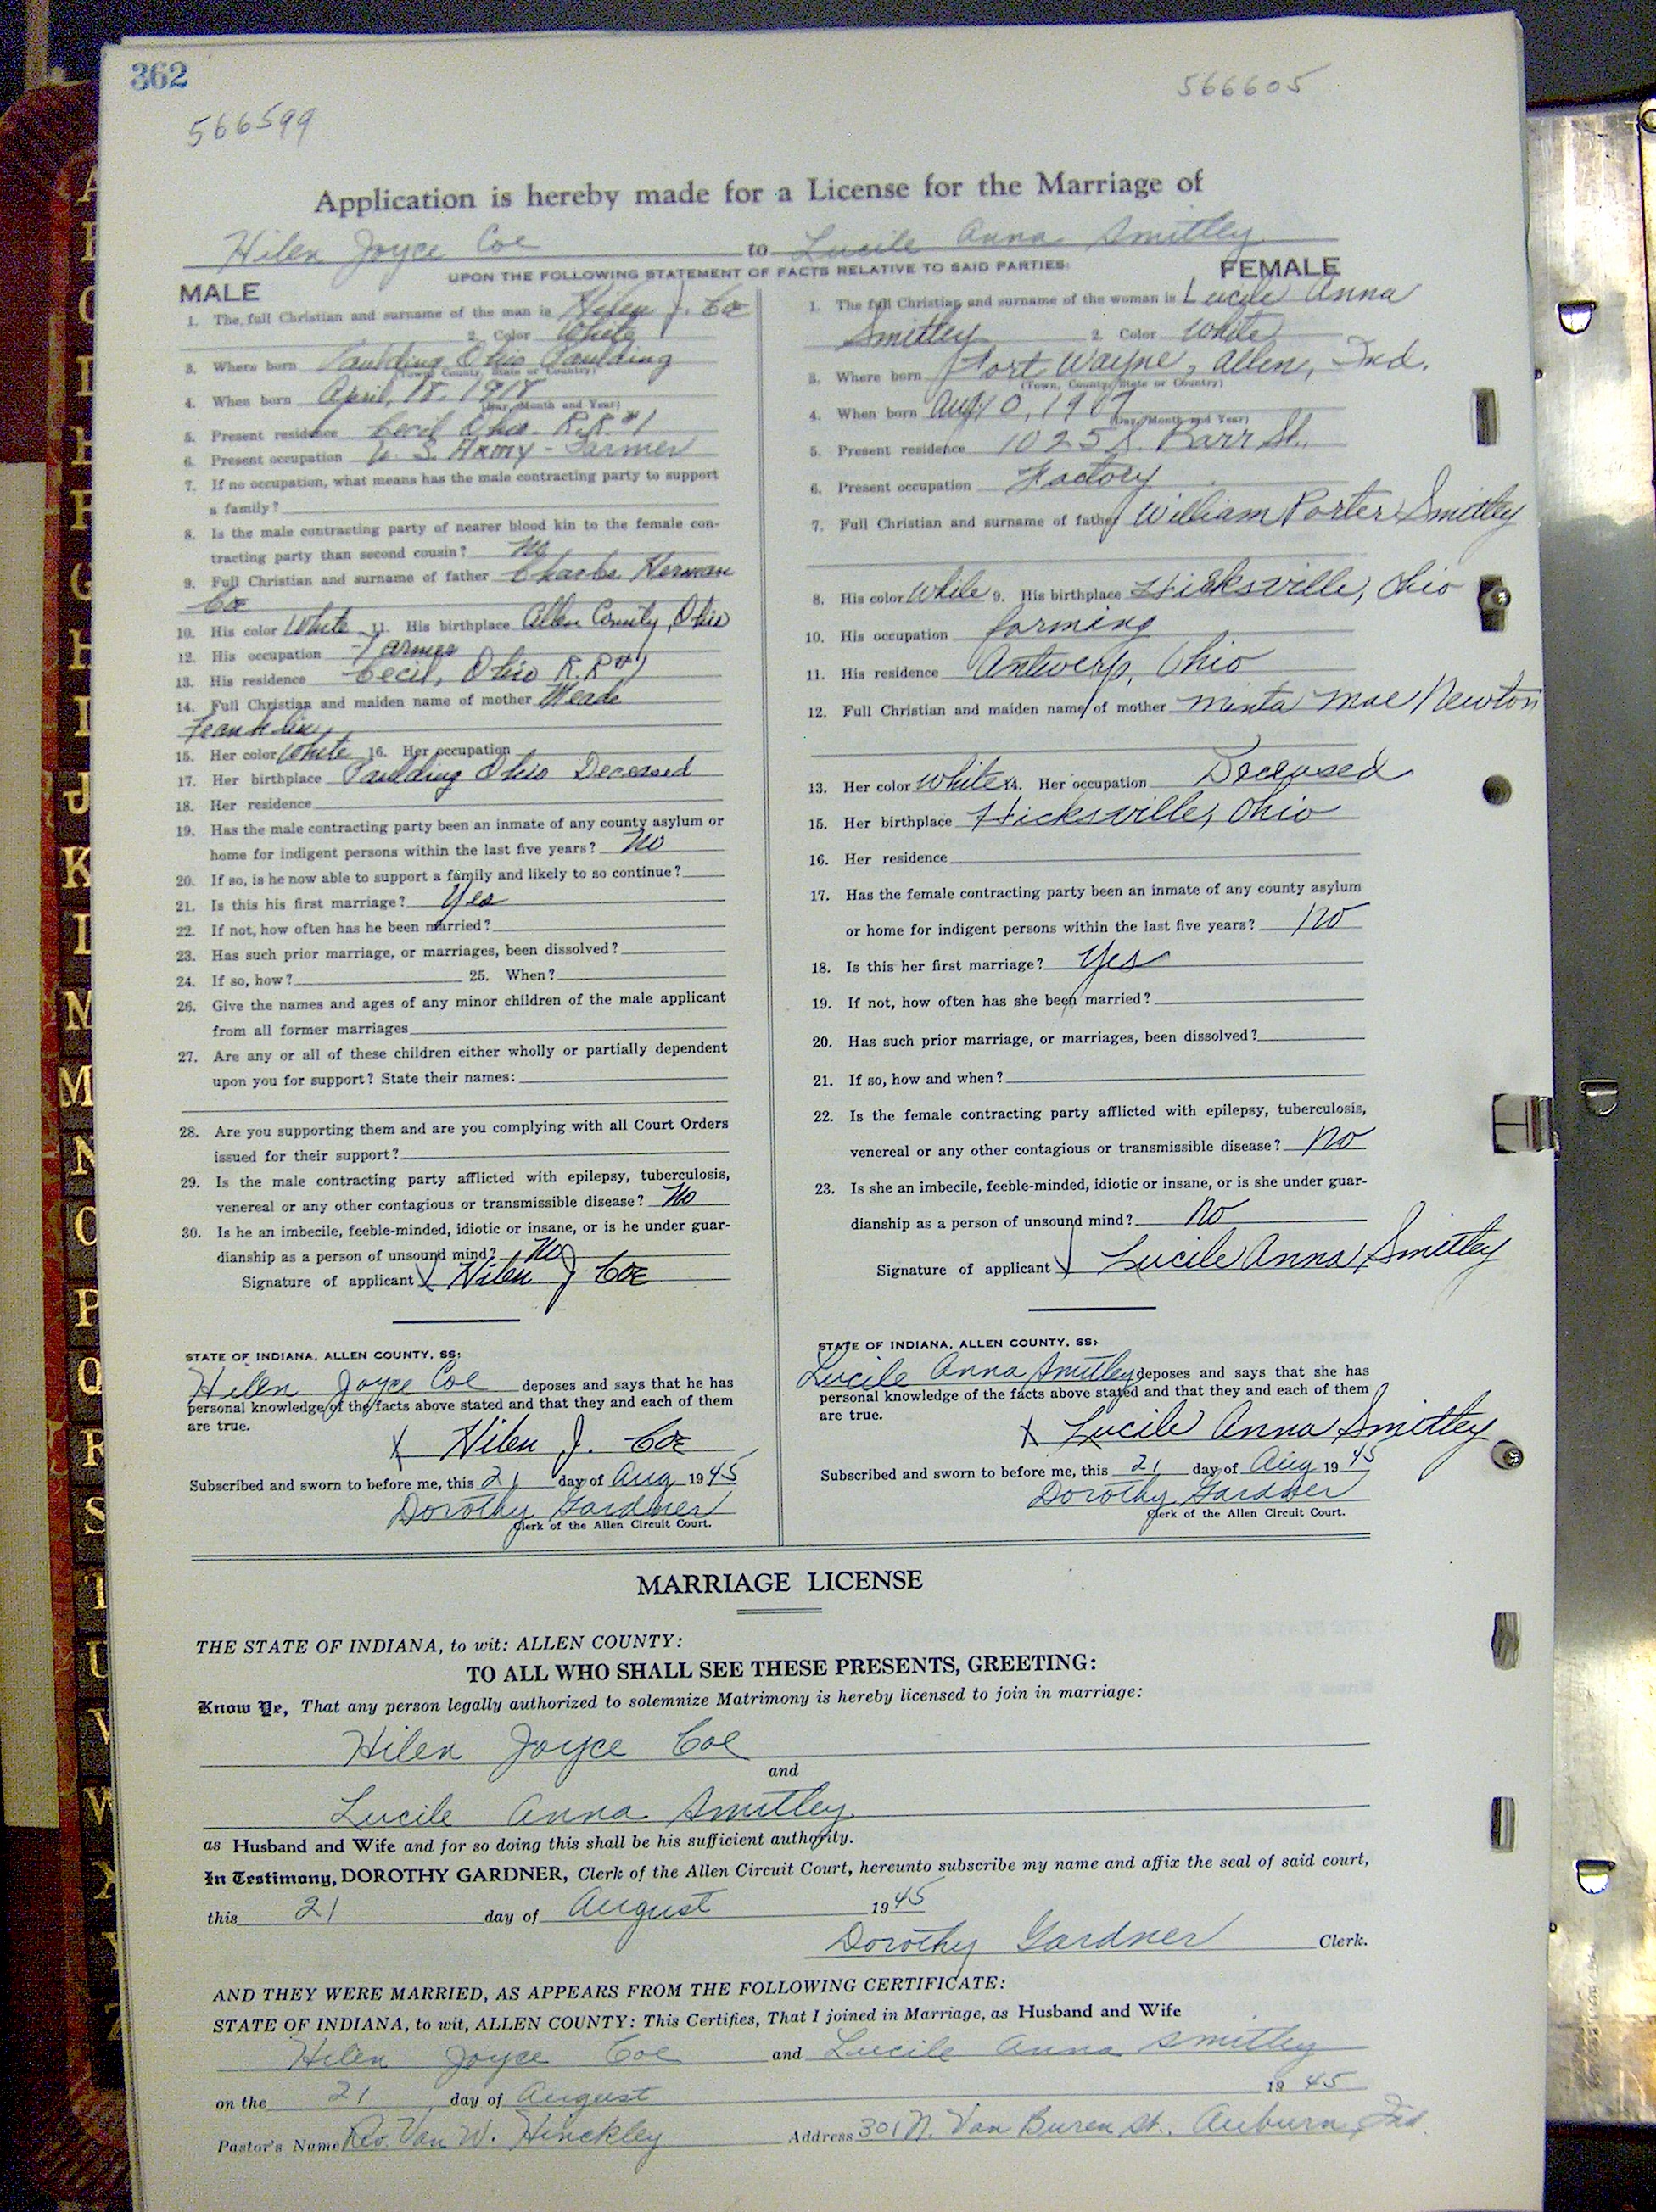 362
566599
566605
Application is hereby made for a License for the Marriage of
Hilen Joyce Coe to Lucile Anna Smitley
UPON THE FOLLOWING STATEMENT OF FACTS RELATIVE TO SAID PARTIES:
MALE
1. The full Christian and surname of the man is Hilen J. Coe
2. Color White
3. Where born Paulding Ohio Paulding
(Town, County, State or Country)
4. When born April, 18, 1918
(Day, Month and Year)
5. Present residence Cecil Ohio R.R #1
6. Present occupation U. S. Army - Farmer
7. If no occupation, what means has the male contracting party to support
a family?
8. Is the male contracting party of nearer blood kin to the female con-
tracting party than second cousin? No
9. Full Christian and surname of father Charles Herman
Coe
10. His color White 11. His birthplace Allen County, Ohio
12. His occupation Farmer
13. His residence Cecil, Ohio R.R #1
14. Full Christian and maiden name of mother Meade
Franklin
15. Her color White 16. Her occupation
17. Her birthplace Paulding Ohio Deceased
18. Her residence
19. Has the male contracting party been an inmate of any county asylum or
home for indigent persons within the last five years? No
20. If so, is he now able to support a family and likely to so continue?
21. Is this his first marriage? Yes
22. If not, how often has he been married?
23. Has such prior marriage, or marriages, been dissolved?
24. If so, how? 25. When?
26. Give the names and ages of any minor children of the male applicant
from all former marriages
27. Are any or all of these children either wholly or partially dependent
upon you for support? State their names:
28. Are you supporting them and are you complying with all Court Orders
issued for their support?
29. Is the male contracting party afflicted with epilepsy, tuberculosis,
venereal or any other contagious or transmissible disease? No
30. Is he an imbecile, feeble-minded, idiotic or insane, or is he under guar-
dianship as a person of unsound mind? No
Signature of applicant X Hilen J Coe
STATE OF INDIANA, ALLEN COUNTY, SS:
Hilen Joyce Coe deposes and says that he has
personal knowledge of the facts above stated and that they and each of them
are true.
X Hilen J. Coe
Subscribed and sworn to before me, this 21 day of Aug 1945
Dorothy Gardner
Clerk of the Allen Circuit Court.
FEMALE
1. The full Christian and surname of the woman is Lucile Anna
Smitley 2. Color White
3. Where born Fort Wayne, Allen, Ind.
(Town, County, State or Country)
4. When born Aug 10, 1917
(Day, Month and Year)
5. Present residence 1025 S. Barr St.
6. Present occupation Factory
7. Full Christian and surname of father William Porter Smitley
8. His color White 9. His birthplace Hicksville, Ohio
10. His occupation farming
11. His residence Antwerp, Ohio
12. Full Christian and maiden name of mother Minta Mae Newton
13. Her color White 14. Her occupation Deceased
15. Her birthplace Hicksville, Ohio
16. Her residence
17. Has the female contracting party been an inmate of any county asylum
or home for indigent persons within the last five years? No
18. Is this her first marriage? Yes
19. If not, how often has she been married?
20. Has such prior marriage, or marriages, been dissolved?
21. If so, how and when?
22. Is the female contracting party afflicted with epilepsy, tuberculosis,
venereal or any other contagious or transmissible disease? No
23. Is she an imbecile, feeble-minded, idiotic or insane, or is she under guar-
dianship as a person of unsound mind? No
Signature of applicant X Lucile Anna Smitley
STATE OF INDIANA, ALLEN COUNTY, SS:
Lucile Anna Smitley deposes and says that she has
personal knowledge of the facts above stated and that they and each of them
are true.
X Lucile Anna Smitley
Subscribed and sworn to before me, this 21 day of Aug 1945
Dorothy Gardner
Clerk of the Allen Circuit Court.
MARRIAGE LICENSE
THE STATE OF INDIANA, to wit: ALLEN COUNTY:
TO ALL WHO SHALL SEE THESE PRESENTS, GREETING:
Know Ye, That any person legally authorized to solemnize Matrimony is hereby licensed to join in marriage:
Hilen Joyce Coe
and
Lucile Anna Smitley
as Husband and Wife and for so doing this shall be his sufficient authority.
In Testimony, DOROTHY GARDNER, Clerk of the Allen Circuit Court, hereunto subscribe my name and affix the seal of said court,
this 21 day of August 1945
Dorothy Gardner Clerk.
AND THEY WERE MARRIED, AS APPEARS FROM THE FOLLOWING CERTIFICATE:
STATE OF INDIANA, to wit, ALLEN COUNTY: This Certifies, That I joined in Marriage, as Husband and Wife
Hilen Joyce Coe and Lucile Anna Smitley
on the 21 day of August 1945
Pastor's Name Rev. Van W. Hinckley Address 301 N. Van Buren St., Auburn, Ind.